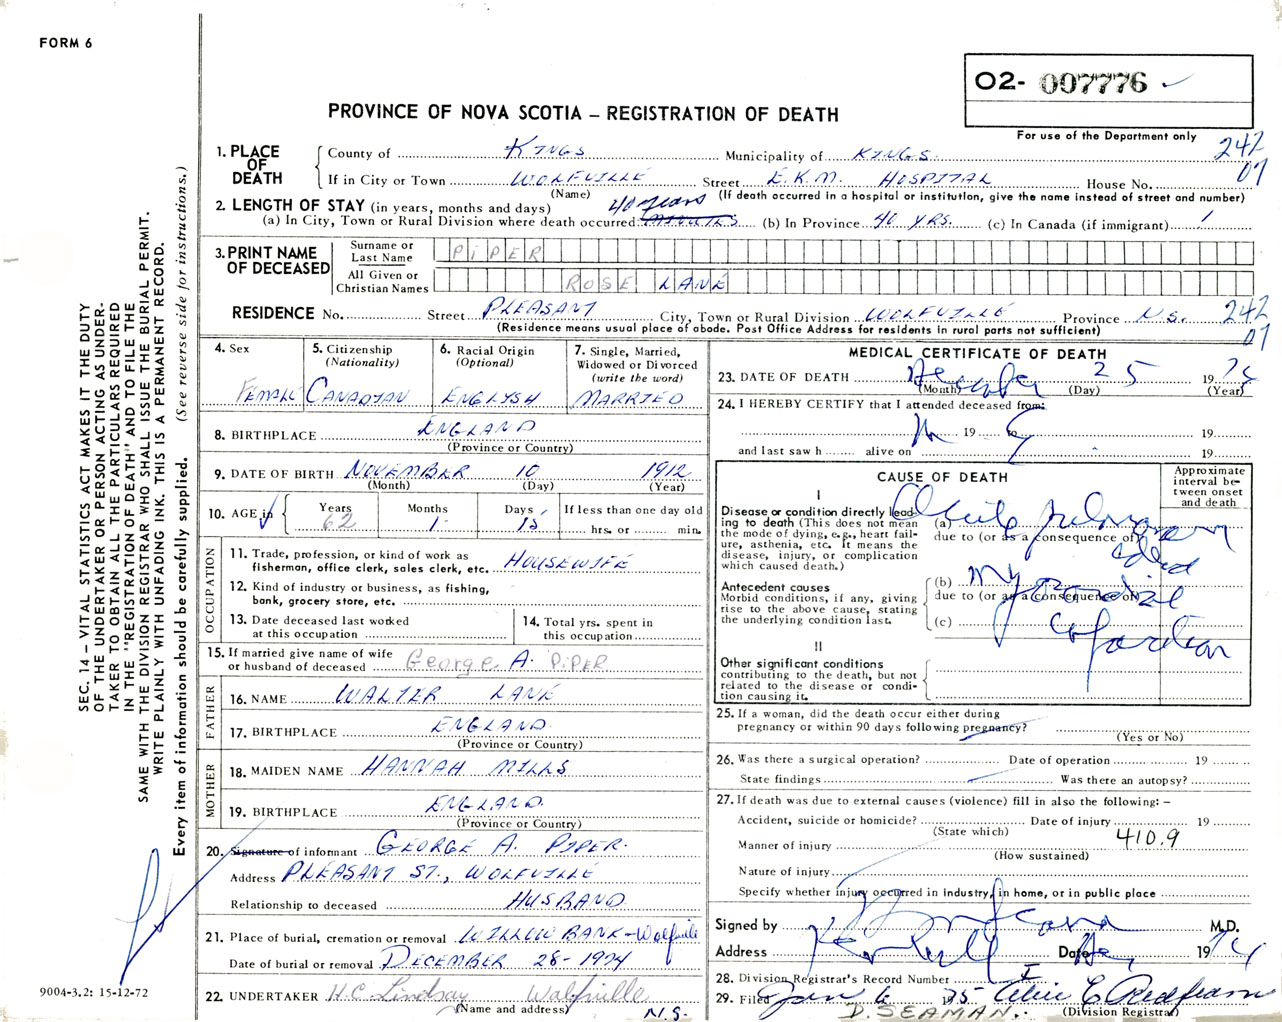 FORM 6
O2- 007776
PROVINCE OF NOVA SCOTIA – REGISTRATION OF DEATH
For use of the Department only
1. PLACE OF DEATH
County of KINGS Municipality of KINGS. 242
If in City or Town WOLFVILLE Street E.K.M. HOSPITAL House No. 07
(Name) (If death occurred in a hospital or institution, give the name instead of street and number)
2. LENGTH OF STAY (in years, months and days) 40 years
(a) In City, Town or Rural Division where death occurred (b) In Province 40 YRS. (c) In Canada (if immigrant)
3. PRINT NAME OF DECEASED
Surname or Last Name PIPER
All Given or Christian Names ROSE LANE
RESIDENCE No. Street PLEASANT City, Town or Rural Division WOLFVILLE Province N.S. 242
(Residence means usual place of abode. Post Office Address for residents in rural parts not sufficient) 07
4. Sex
FEMALE
5. Citizenship (Nationality)
CANADIAN
6. Racial Origin (Optional)
ENGLISH
7. Single, Married, Widowed or Divorced (write the word)
MARRIED
8. BIRTHPLACE ENGLAND
(Province or Country)
9. DATE OF BIRTH NOVEMBER 10 1912
(Month) (Day) (Year)
10. AGE in
Years Months Days If less than one day old
62 1 15 hrs. or min.
OCCUPATION
11. Trade, profession, or kind of work as
fisherman, office clerk, sales clerk, etc. HOUSEWIFE
12. Kind of industry or business, as fishing,
bank, grocery store, etc.
13. Date deceased last worked
at this occupation
14. Total yrs. spent in
this occupation
15. If married give name of wife
or husband of deceased George A. PIPER
FATHER
16. NAME WALTER LANE
17. BIRTHPLACE ENGLAND
(Province or Country)
MOTHER
18. MAIDEN NAME HANNAH MILLS
19. BIRTHPLACE ENGLAND
(Province or Country)
20. Signature of informant GEORGE A. PIPER.
Address PLEASANT ST., WOLFVILLE
Relationship to deceased HUSBAND
21. Place of burial, cremation or removal WILLOW BANK - Wolfville
Date of burial or removal DECEMBER 28 - 1974
22. UNDERTAKER H.C. Lindsay Wolfville
(Name and address) N.S.
MEDICAL CERTIFICATE OF DEATH
23. DATE OF DEATH December 25 1974
(Month) (Day) (Year)
24. I HEREBY CERTIFY that I attended deceased from:
19 to 19
and last saw h alive on 19
CAUSE OF DEATH
Approximate interval between onset and death
I
Disease or condition directly lead-
ing to death (This does not mean
the mode of dying, e.g., heart fail-
ure, asthenia, etc. It means the
disease, injury, or complication
which caused death.)
(a) Acute pulmonary edema
due to (or as a consequence of)
Antecedent causes
Morbid conditions, if any, giving
rise to the above cause, stating
the underlying condition last.
(b) Myocardial infarction
due to (or as a consequence of)
(c)
II
Other significant conditions
contributing to the death, but not
related to the disease or condi-
tion causing it.
25. If a woman, did the death occur either during
pregnancy or within 90 days following pregnancy?
(Yes or No)
26. Was there a surgical operation? Date of operation 19
State findings Was there an autopsy?
27. If death was due to external causes (violence) fill in also the following: –
Accident, suicide or homicide? Date of injury 19
(State which) 410.9
Manner of injury
(How sustained)
Nature of injury
Specify whether injury occurred in industry, in home, or in public place
Signed by M.D.
Address Date Dec 1974
28. Division Registrar's Record Number
29. Filed Jan 6 1975
D. SEAMAN. (Division Registrar)
SEC. 14 – VITAL STATISTICS ACT MAKES IT THE DUTY
OF THE UNDERTAKER OR PERSON ACTING AS UNDER-
TAKER TO OBTAIN ALL THE PARTICULARS REQUIRED
IN THE "REGISTRATION OF DEATH" AND TO FILE THE
SAME WITH THE DIVISION REGISTRAR WHO SHALL ISSUE THE BURIAL PERMIT.
WRITE PLAINLY WITH UNFADING INK. THIS IS A PERMANENT RECORD.
Every item of information should be carefully supplied. (See reverse side for instructions.)
9004-3.2: 15-12-72